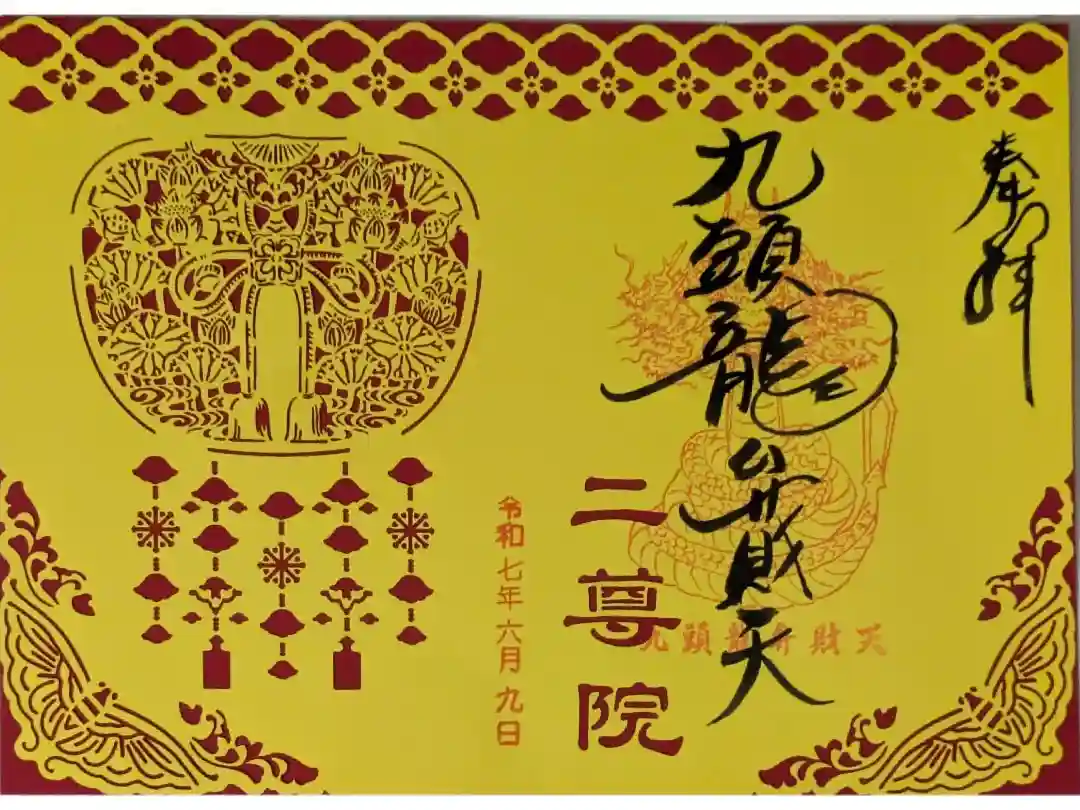 奉拝
九頭龍弁財天
九頭龍弁財天
二尊院
令和七年六月九日